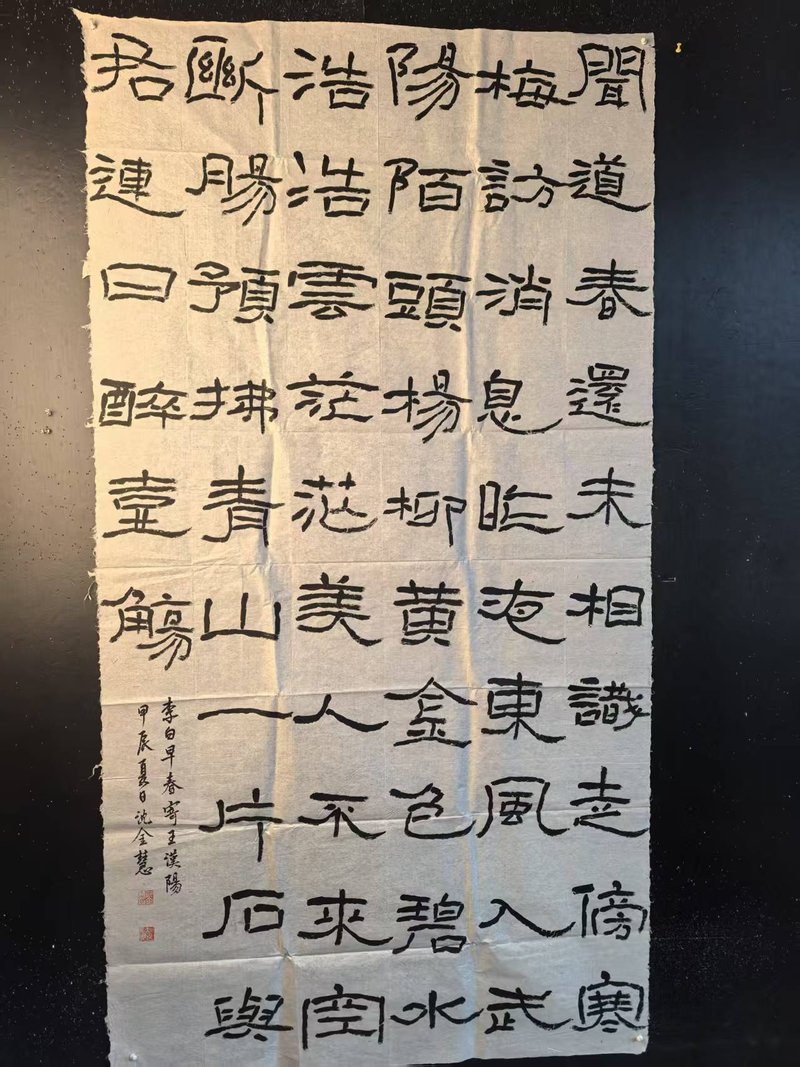 聞道春還未相識走傍寒
梅訪消息昨夜東風入武
陽陌頭楊柳黃金色碧水
浩浩雲茫茫美人不來空
斷腸預拂青山一片石與
君連日醉壺觴
李白早春寄王漢陽
甲辰夏日沈金慧